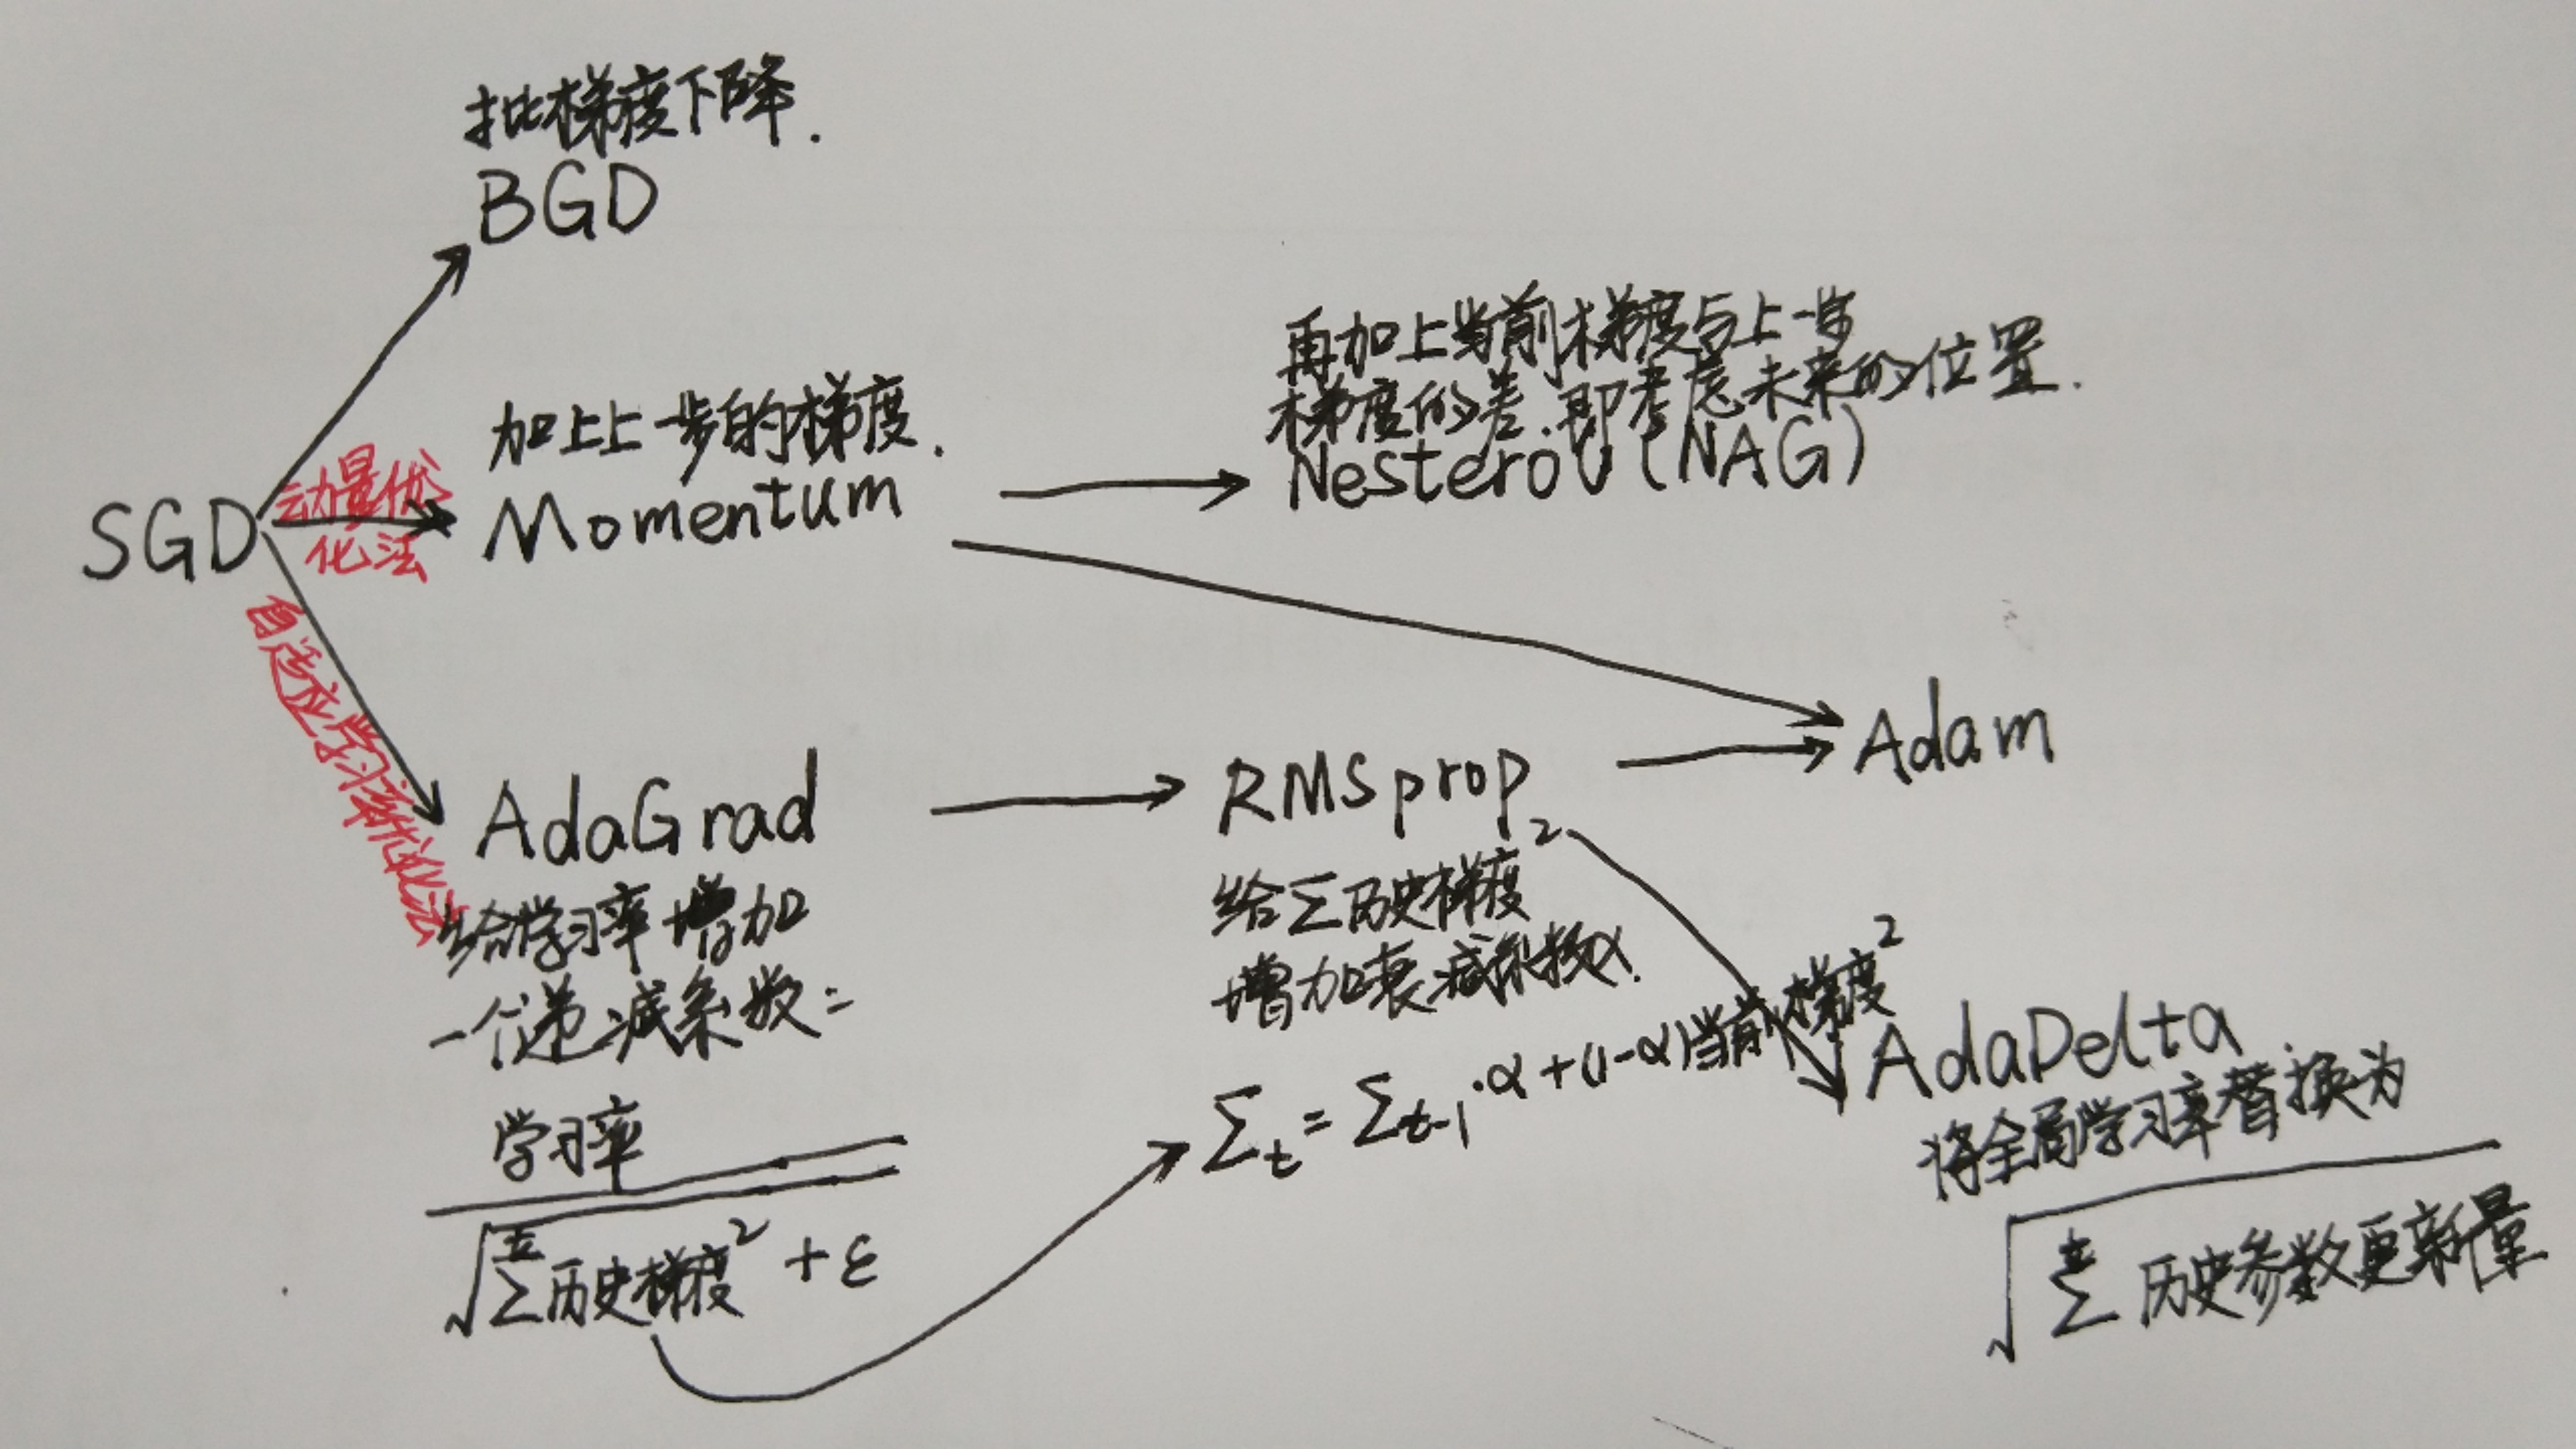 批梯度下降.
BGD
再加上当前梯度与上一步
梯度的差.即考虑未来的位置.
Nesterov(NAG)
加上上一步的梯度.
Momentum
动量优
化法
SGD
自适应学习率优化法
Adam
AdaGrad
RMSprop
给学习率增加
一个递减系数:
学习率
√Σ历史梯度² + ε
给Σ历史梯度²
增加衰减系数α.
Σt = Σt-1·α + (1-α)当前梯度²
AdaDelta
将全局学习率替换为
√Σ历史参数更新量